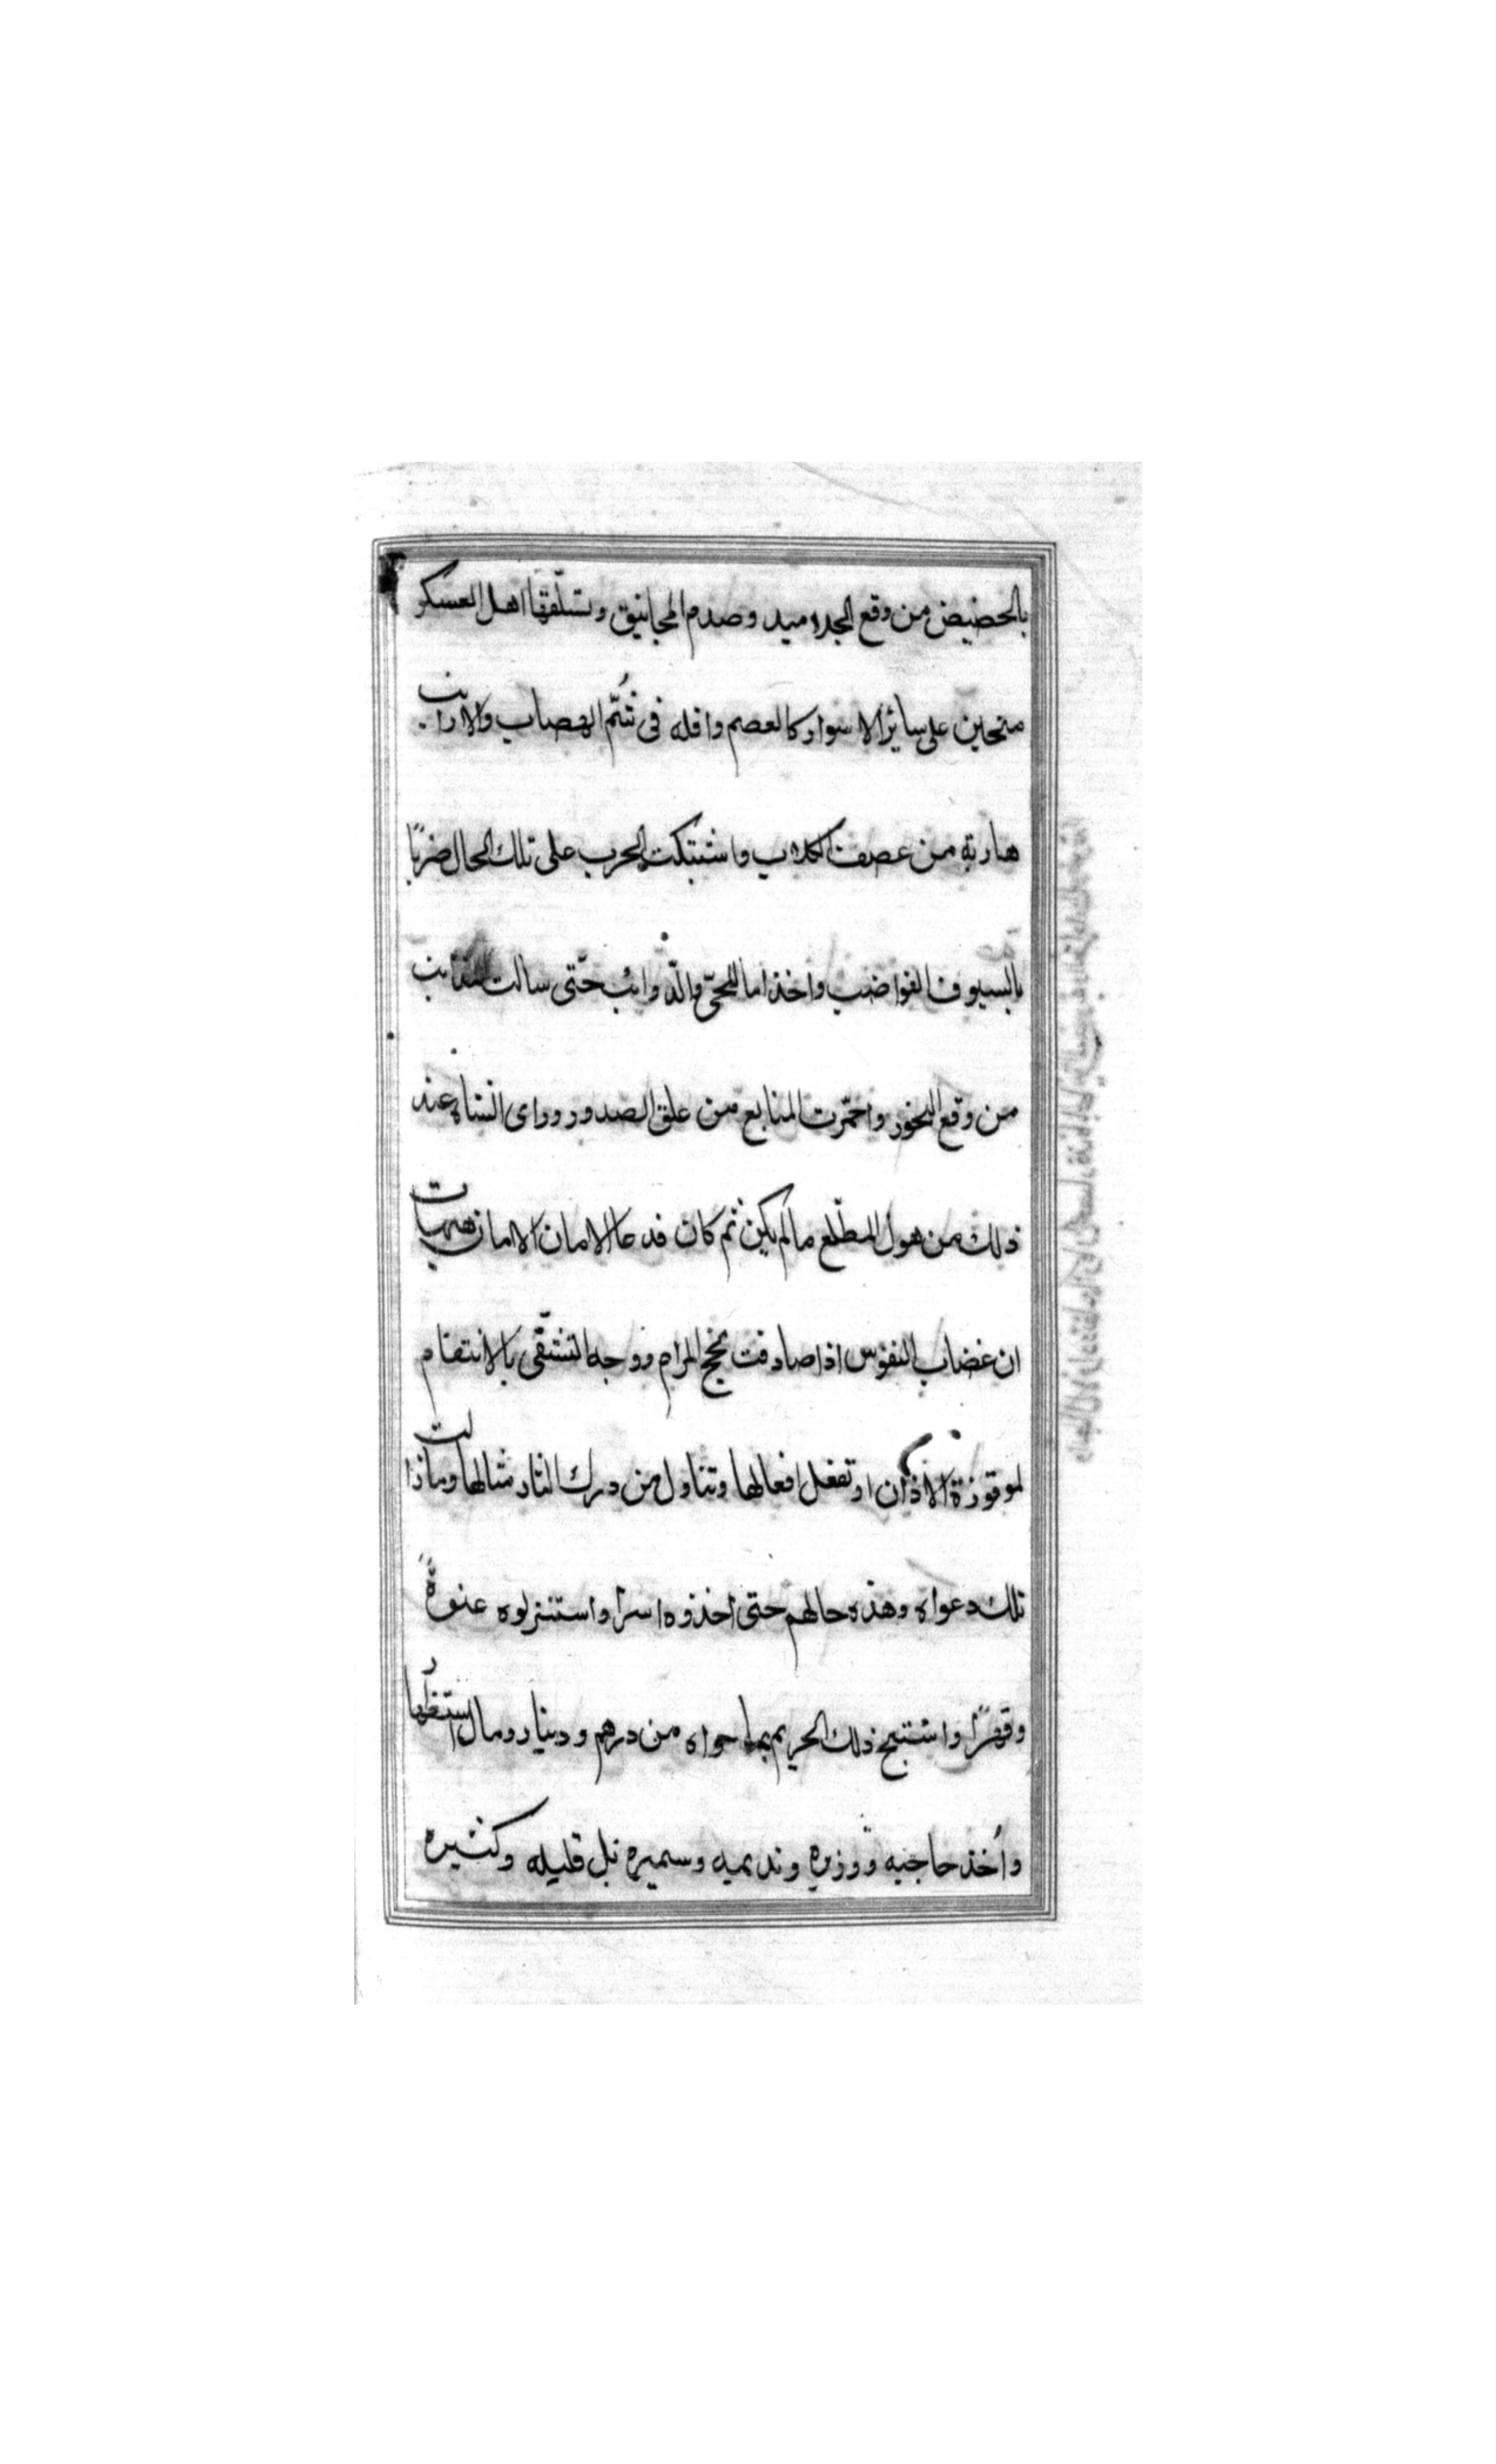 بالحضيض من وقع الجلاميد وصدم المجانيق وتسلّقها اهل العسكر
منحين على سائر الاسوار كالعصم وافله فى شُمّ الهضاب والارانب
هاربة من عصف الكلاب واشتبكت الحرب على تلك الحال ضربًا
بالسيوف القواضب واخذا باللحىّ والذّوائب حتّى سالت
من وقع النحور واحمّرت المنابع من علق الصدور وراى الشاه عند
ذلك من هول المطّلع ما لم يكن ثم كان فدعا الامان الامان هيهات
ان غضاب النفوس اذا صادفت نجح المرام ووجه التشفّى بالانتقام
لموقوذة الاذان او تفعل افعالها وتناول من درك الثار منالها وما زالت
تلك دعواه وهذه حالهم حتى اخذوه اسرا واستنزلوه عنوةً
وقهرًا واستبيح ذلك الحريم بما حواه من درهم ودينار ومال
واُخذ حاجبه ووزيره ونديمه وسميره بل قليله وكثيره